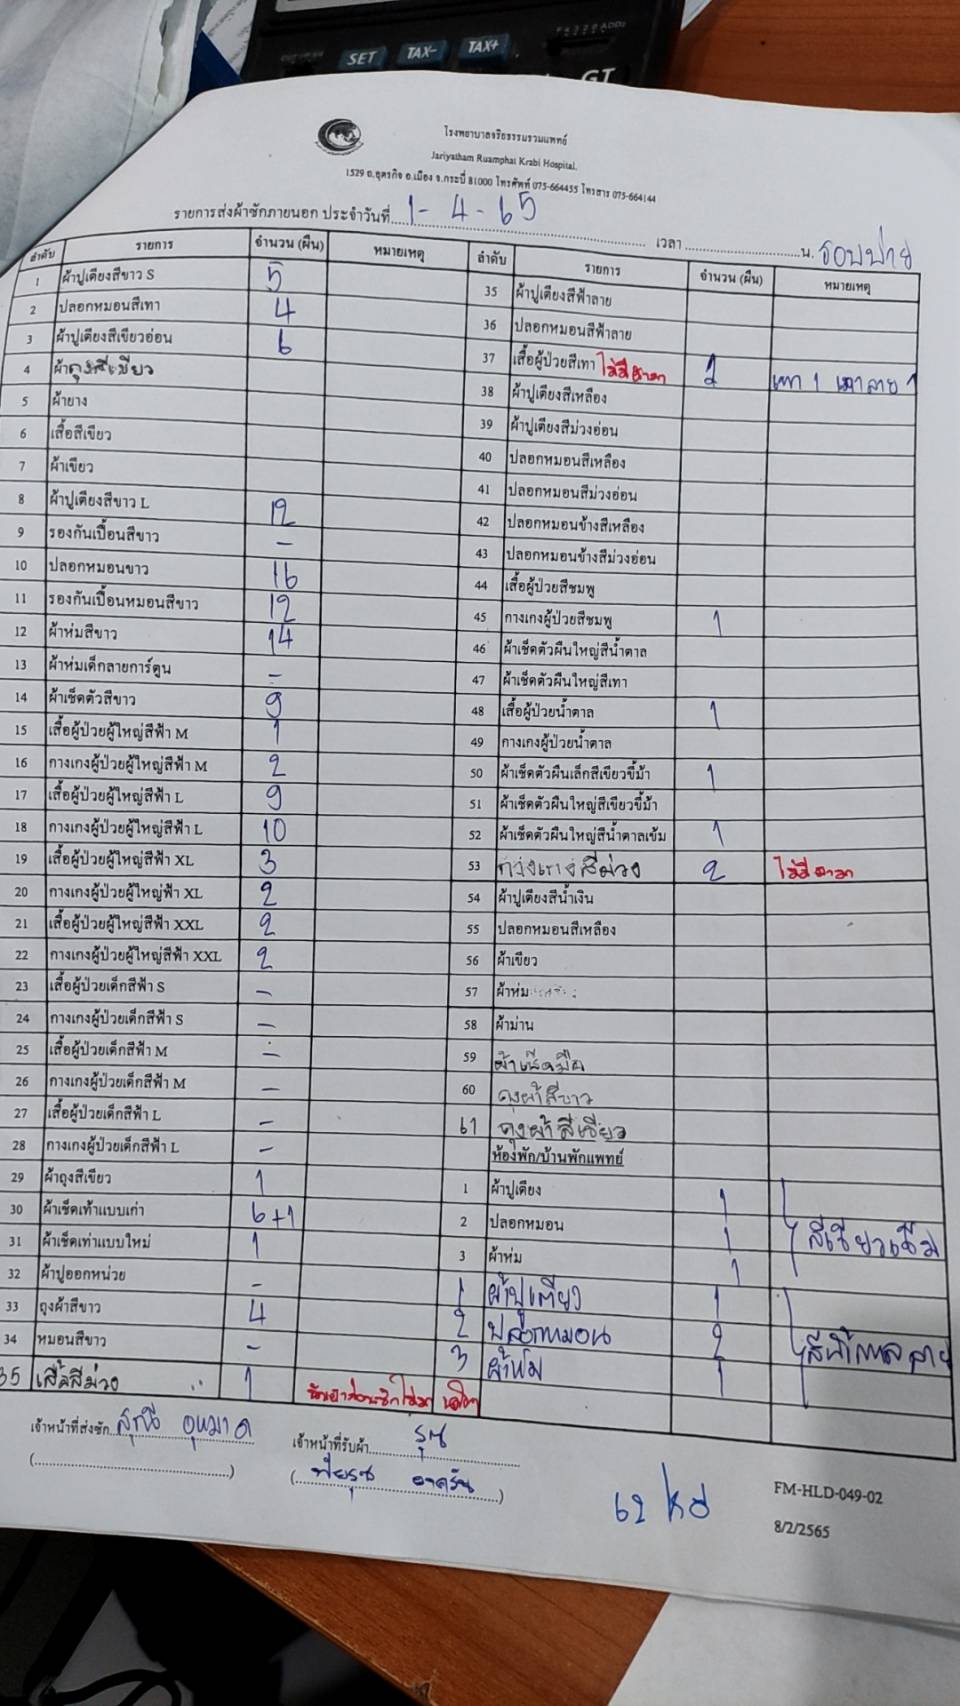 SET TAX- TAX+ GT
โรงพยาบาลจริยธรรมรวมแพทย์
Jariyatham Ruamphai Krabi Hospital.
1529 ถ.อุตรกิจ อ.เมือง จ.กระบี่ 81000 โทรศัพท์ 075-664455 โทรสาร 075-664144
รายการส่งผ้าซักภายนอก ประจำวันที่ 1-4-65 เวลา น. รอบบ่าย
ลำดับ รายการ จำนวน (ผืน) หมายเหตุ
1 ผ้าปูเตียงสีขาว S 5
2 ปลอกหมอนสีเทา 4
3 ผ้าปูเตียงสีเขียวอ่อน 6
4 ผ้าถุงสีเขียว
5 ผ้ายาง
6 เสื้อสีเขียว
7 ผ้าเขียว
8 ผ้าปูเตียงสีขาว L 12
9 รองกันเปื้อนสีขาว -
10 ปลอกหมอนขาว 16
11 รองกันเปื้อนหมอนสีขาว 12
12 ผ้าห่มสีขาว 14
13 ผ้าห่มเด็กลายการ์ตูน -
14 ผ้าเช็ดตัวสีขาว 9
15 เสื้อผู้ป่วยผู้ใหญ่สีฟ้า M 1
16 กางเกงผู้ป่วยผู้ใหญ่สีฟ้า M 2
17 เสื้อผู้ป่วยผู้ใหญ่สีฟ้า L 9
18 กางเกงผู้ป่วยผู้ใหญ่สีฟ้า L 10
19 เสื้อผู้ป่วยผู้ใหญ่สีฟ้า XL 3
20 กางเกงผู้ป่วยผู้ใหญ่ฟ้า XL 2
21 เสื้อผู้ป่วยผู้ใหญ่สีฟ้า XXL 2
22 กางเกงผู้ป่วยผู้ใหญ่สีฟ้า XXL 2
23 เสื้อผู้ป่วยเด็กสีฟ้า S -
24 กางเกงผู้ป่วยเด็กสีฟ้า S -
25 เสื้อผู้ป่วยเด็กสีฟ้า M -
26 กางเกงผู้ป่วยเด็กสีฟ้า M -
27 เสื้อผู้ป่วยเด็กสีฟ้า L -
28 กางเกงผู้ป่วยเด็กสีฟ้า L -
29 ผ้าถุงสีเขียว 1
30 ผ้าเช็ดเท้าแบบเก่า 6+1
31 ผ้าเช็ดเท่าแบบใหม่ 1
32 ผ้าปูออกหน่วย -
33 ถุงผ้าสีขาว 4
34 หมอนสีขาว -
35 เสื้อสีม่วง 1
ลำดับ รายการ จำนวน (ผืน) หมายเหตุ
35 ผ้าปูเตียงสีฟ้าลาย
36 ปลอกหมอนสีฟ้าลาย
37 เสื้อผู้ป่วยสีเทา 2 เทา 1 เทาลาย 1
38 ผ้าปูเตียงสีเหลือง
39 ผ้าปูเตียงสีม่วงอ่อน
40 ปลอกหมอนสีเหลือง
41 ปลอกหมอนสีม่วงอ่อน
42 ปลอกหมอนข้างสีเหลือง
43 ปลอกหมอนข้างสีม่วงอ่อน
44 เสื้อผู้ป่วยสีชมพู
45 กางเกงผู้ป่วยสีชมพู 1
46 ผ้าเช็ดตัวผืนใหญ่สีน้ำตาล
47 ผ้าเช็ดตัวผืนใหญ่สีเทา
48 เสื้อผู้ป่วยน้ำตาล 1
49 กางเกงผู้ป่วยน้ำตาล
50 ผ้าเช็ดตัวผืนเล็กสีเขียวขี้ม้า 1
51 ผ้าเช็ดตัวผืนใหญ่สีเขียวขี้ม้า
52 ผ้าเช็ดตัวผืนใหญ่สีน้ำตาลเข้ม 1
53 กางเกงสีม่วง 2
54 ผ้าปูเตียงสีน้ำเงิน
55 ปลอกหมอนสีเหลือง
56 ผ้าเขียว
57 ผ้าห่ม
58 ผ้าม่าน
59 ผ้าเช็ดมือ
60 ถุงผ้าสีขาว
61 ถุงผ้าสีเขียว
ห้องพัก/บ้านพักแพทย์
1 ผ้าปูเตียง 1
2 ปลอกหมอน 1 สีเขียวเข้ม
3 ผ้าห่ม 1
1 ผ้าปูเตียง 1
2 ปลอกหมอน 2
3 ผ้าห่ม 1
เจ้าหน้าที่ส่งซัก
เจ้าหน้าที่รับผ้า
62 ห่อ
FM-HLD-049-02
8/2/2565